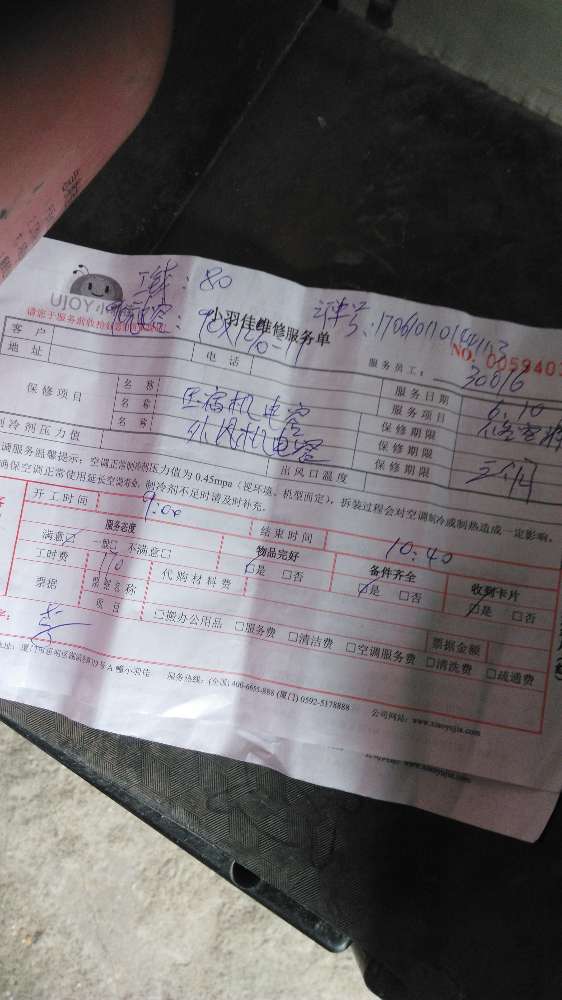 工费:80
UJOY小
小羽佳维修服务单
NO. 0059403
客户
电话
服务员工:30016
地址
服务日期 6.10
保修项目
名称
服务项目
名称 压缩机电容
保修期限
名称 外风机电容
保修期限
制冷剂压力值
出风口温度
保修期限
调服务温馨提示:空调正常制冷剂压力值为0.45mpa(视环境、机型而定),拆装过程会对空调制冷或制热造成一定影响,
确保空调正常使用延长空调寿命,制冷剂不足时请及时补充。
开工时间 9:00
结束时间 10:40
服务态度
物品完好
备件齐全
收到卡片
满意☑ 一般□ 不满意□
☑是 □否
☑是 □否
☑是 □否
工时费 110
代购材料费
票据
票据名称
项目
□办公用品 □服务费 □清洁费 □空调服务费 □清洗费 □疏通费
票据金额
服务热线:(全国)400-6655-888 (厦门) 0592-5178888
公司网站:www.xiaoyujia.com
www.xiaoyujia.com